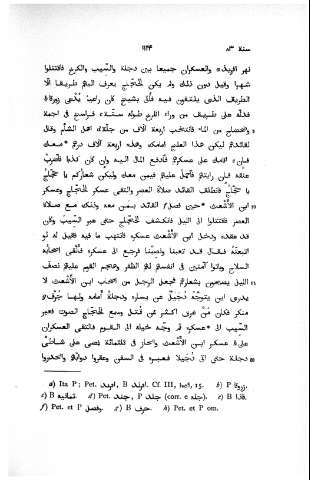 سنة ٨٣ ١١٢٣
نهر افريذ والعسكران جميعا بين دجلة والسيب والكرخ فاقتتلوا
شهرا وقيل دون ذلك ولم يكن للحجّاج يعرف اليهم طريقا الّا
الطريق الذى يلتقون فيه فأتى بشيخ كان راعيا يُدْعى زورقا
فدلّه على طريق من وراء الكرخ طوله ستّة فراسخ فى اجمة
وضحضاح من الماء فانتخب اربعة آلاف من جلّة اهل الشأم وقال
لقائدهم ليكن هذا العلج امامك وهذه اربعة آلاف درهم معك
فان اقامك على عسكرهم فادفع المال اليه وان كان كذبا فاضرب
عنقه فان رايتهم فاحمل عليهم فيمن معك وليكن شعاركم يا حجّاج
يا حجّاج فانطلق القائد صلاة العصر والتقى عسكر الحجّاج وعسكر
ابن الأشعث حين فصل القائد بمن معه وذلك مع صلاة
العصر فاقتتلوا الى الليل فانكشف الحجّاج حتى عبر السيب وكان
قد عقده ودخل ابن الأشعث عسكره فانتهب ما فيه فقيل له لو
اتبعته فقال قد تعبنا ونصبنا فرجع الى عسكره فألقى اصحابه
السلاح وباتوا آمنين فى انفسهم لهم الظفر وهجم القوم عليهم نصف
الليل يصيحون بشعارهم فجعل الرجل من اصحاب ابن الأشعث لا
يدرى اين يتوجّه دُجَيل عن يساره ودجلة امامه ولها جُرُف
منكر فكان من غرق اكثر ممن قُتل وسمع الحجّاج الصوت فعبر
السيب الى عسكره ثم وجّه خيله الى القوم فالتقى العسكران
على عسكر ابن الأشعث وانحاز فى ثلثمائة فمضى على شاطئ
دجلة حتى اتى دُجَيلا فعبره فى السفن وعقروا دوابّهم وانحدروا
a) Ita P; Pet. افريد, B افرند. Cf. III, b) P
c) B ثمانية. d) Pet. جند, P جلد (corr. e جله). e) B
f) Pet. et P فضل. g) B حرف. h) Pet. et P om.